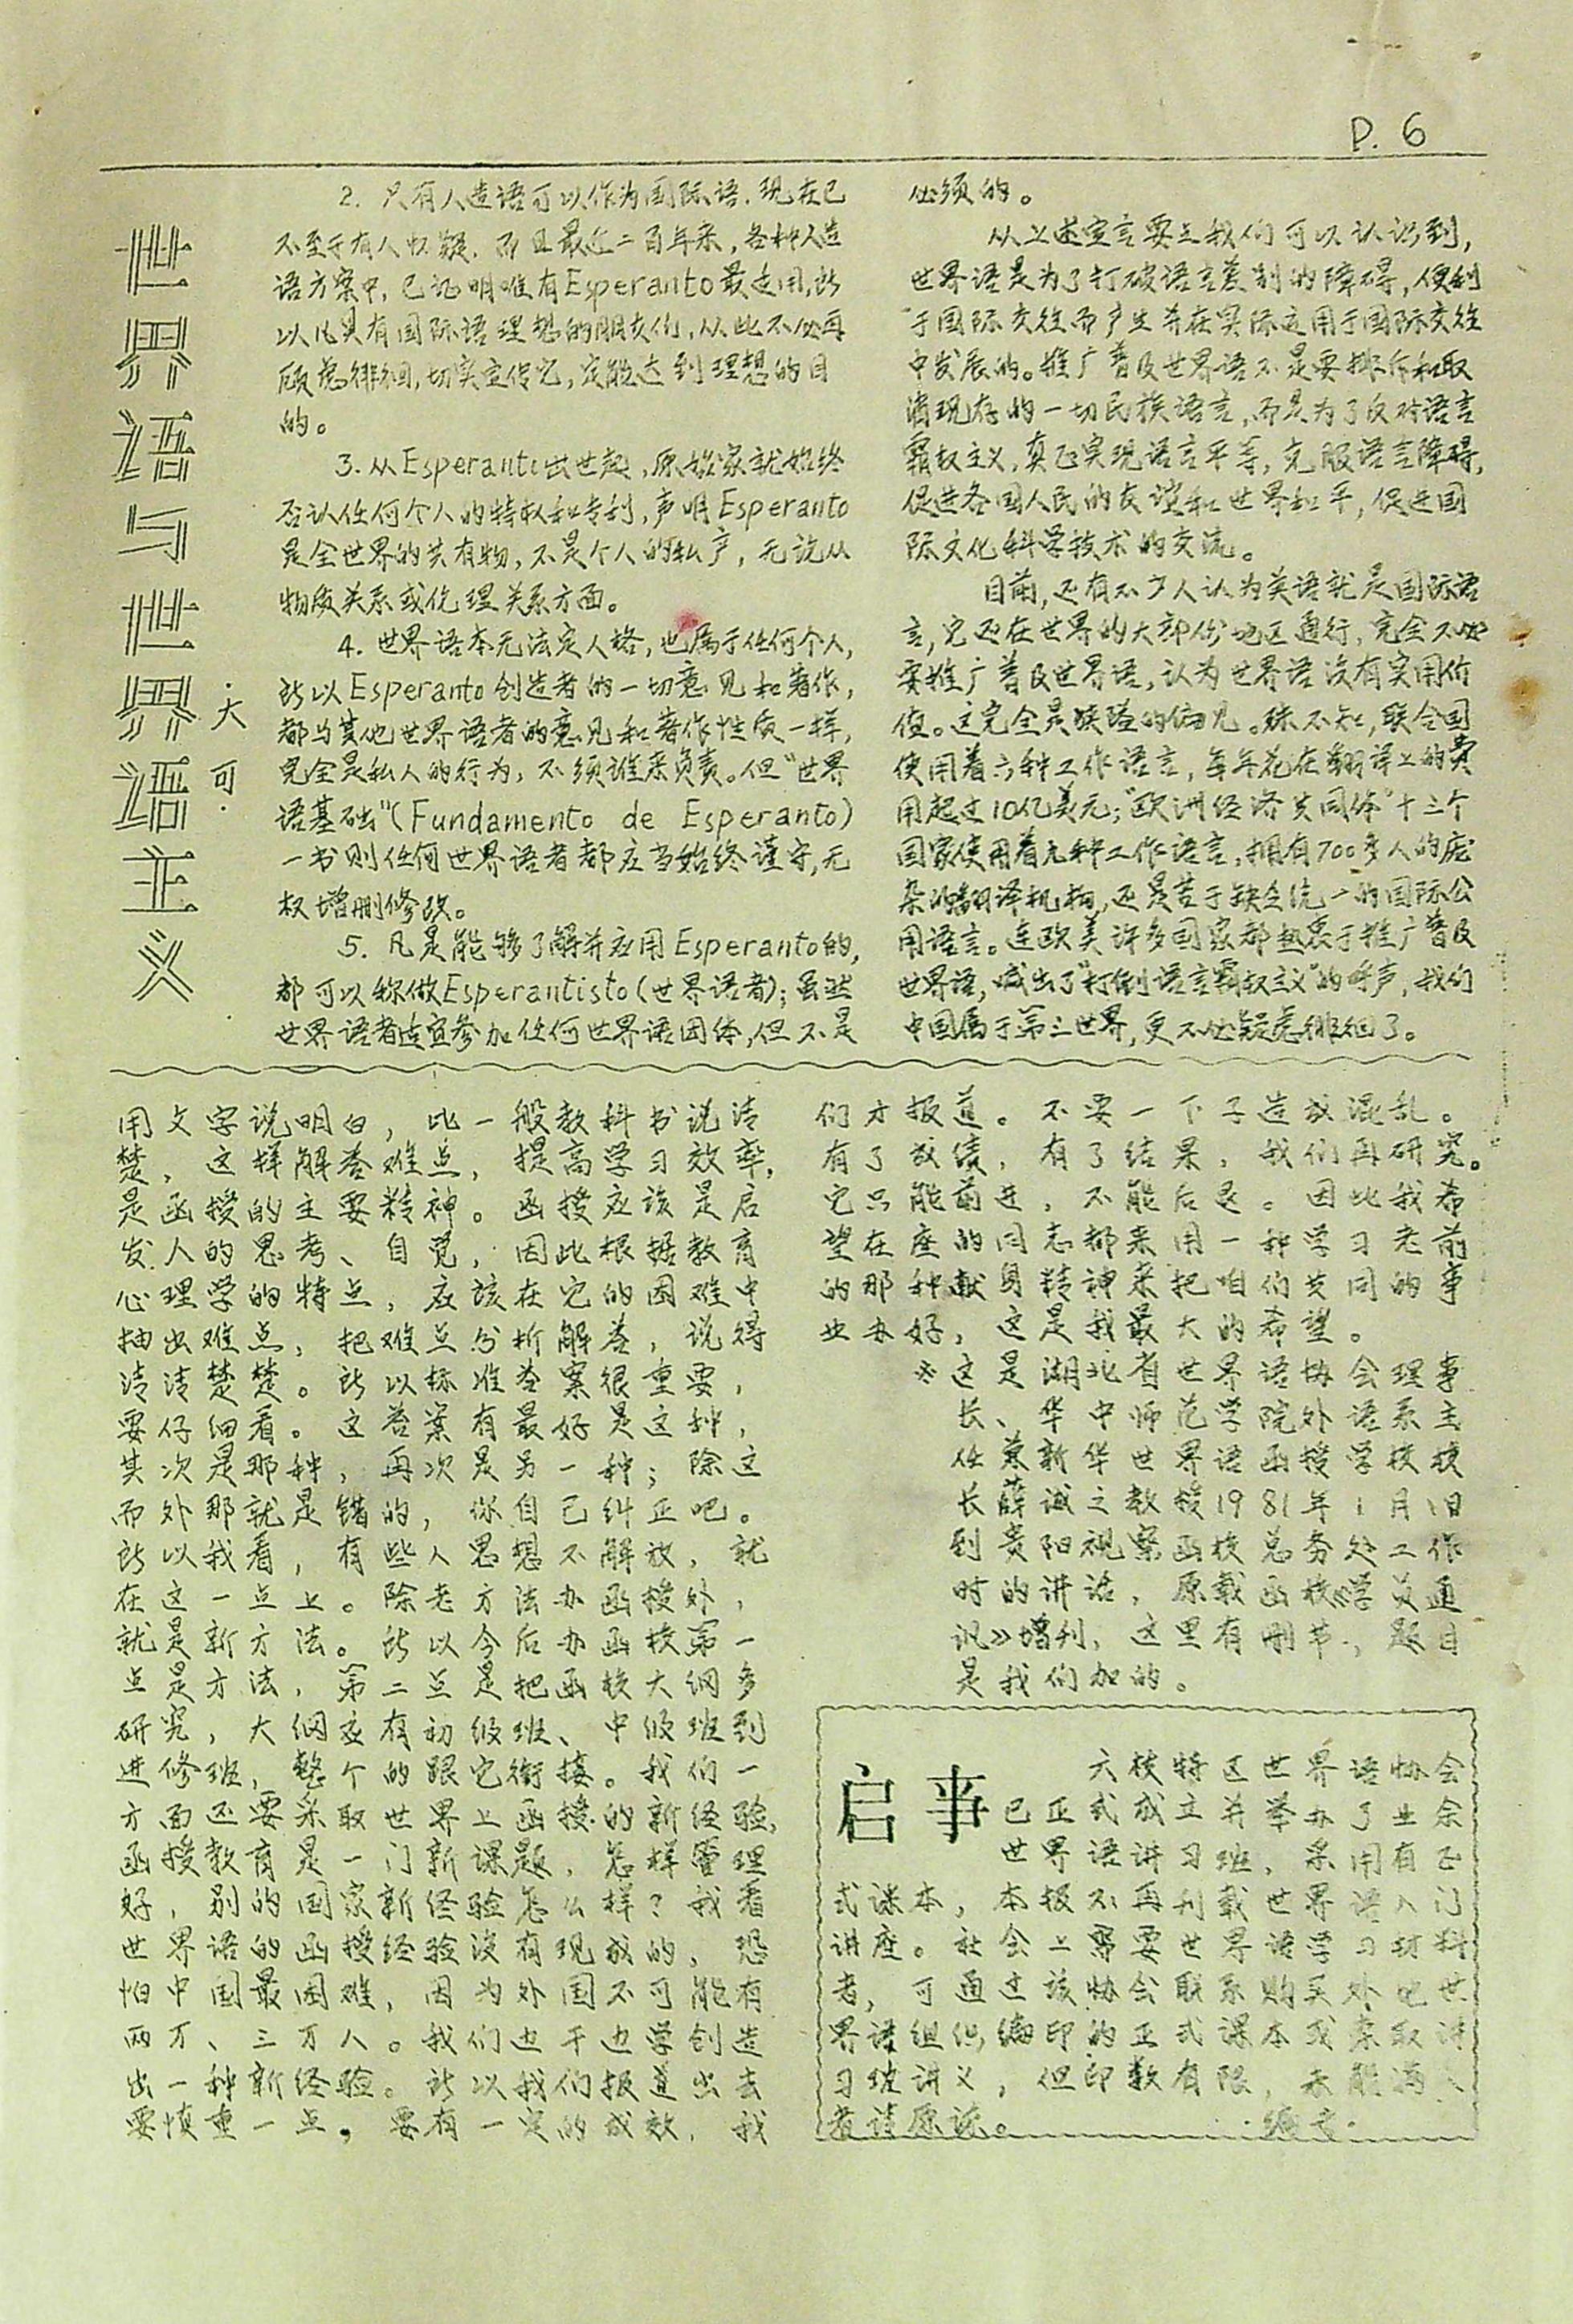 P. 6
世界语与世界语主义
·大可·
2. 只有人造语可以作为国际语.现在已
不至于有人怀疑.而且最近二百年来,各种人造
语方案中,已证明唯有Esperanto最适用,所
以凡具有国际语理想的朋友们,从此不必再
顾虑徘徊,切实宣传它,定能达到理想的目
的。
3.从Esperanto出世起,原始家就始终
否认任何个人的特权和专利,声明Esperanto
是全世界的共有物,不是个人的私产,无说从
物质关系或伦理关系方面。
4. 世界语本无法定人格,也属于任何个人,
所以Esperanto创造者的一切意见和著作,
都与其他世界语者的意见和著作性质一样,
完全是私人的行为,不须谁来负责。但“世界
语基础”(Fundamento de Esperanto)
一书则任何世界语者都应当始终谨守,无
权增删修改。
5. 凡是能够了解并应用Esperanto的,
都可以称做Esperantisto(世界语者);虽然
世界语者适宜参加任何世界语团体,但不是
必须的。
从上述宣言要点我们可以认识到,
世界语是为了打破语言差别的障碍,便利
于国际交往而产生并在实际运用于国际交往
中发展的。推广普及世界语不是要排斥和取
消现存的一切民族语言,而是为了反对语言
霸权主义,真正实现语言平等,克服语言障碍,
促进各国人民的友谊和世界和平,促进国
际文化科学技术的交流。
目前,还有不少人认为英语就是国际语
言,它还在世界的大部份地区通行,完全不必
要推广普及世界语,认为世界语没有实用价
值。这完全是狭隘的偏见。殊不知,联合国
使用着六种工作语言,每年花在翻译上的费
用超过10亿美元;“欧洲经济共同体”十二个
国家使用着九种工作语言,拥有700多人的庞
杂的翻译机构,还是苦于缺乏统一的国际公
用语言。连欧美许多国家都热衷于推广普及
世界语,喊出了“打倒语言霸权主义”的呼声,我们
中国属于第三世界,更不必疑虑徘徊了。
用文字说明白,比一般教科书说清
楚,这样解答难点,提高学习效率,
是函授的主要精神。函授应该是启
发人的思考、自觉,因此根据教育
心理学的特点,应该在它的困难中
抽出难点,把难点分析解答,说得
清清楚楚。所以标准答案很重要,
要仔细看。这答案有最好是这种,
其次是那种,再次是另一种;除这
而外那就是错的,你自己纠正吧。
所以我看,有些人思想不解放,就
在这一点上。除老方法办函授外,
就是新方法。所以今后办函校第一
点是方法,第二点是把函校大纲多
研究,大纲应有初级班、中级班到
进修班,整个的跟它衔接。我们一
方面还要采取世界上函授的新经验,
函授教育是一门新课题,怎样管理
好,别的国家新经验怎么样?我看
世界语的函授经验没有现成的,恐
怕中国最困难,因为外国不可能有
两万、三万人。我们边干边学创造
出一种新经验。所以我们报道出去
要慎重一点,要有一定的成效,我
们才报道。不要一下子造成混乱。
有了成绩,有了结果,我们再研究。
它只能前进,不能后退。因此我希
望在座的同志都来用一种学习老前
的那种献身精神来把咱们共同的事
业办好,这是我最大的希望。
※这是湖北省世界语协会理事
长、华中师范学院外语系主
任兼新华世界语函授学校校
长薛诚之教授1981年1月1日
到贵阳视察函校总务处工作
时的讲话,原载函校《学员通
讯》增刊,这里有删节,题目
是我们加的。
启事
六枝特区世界语协会
已正式成立并举办了业余
世界语讲习班,采用有正
式课本,本报不再刊载世界语入门
讲座。社会上需要世界语学习材料
者,可通过该协会联系购买外地世
界语组织编印的正式课本或索取讲
习班讲义,但印数有限,未能满
者请原谅。
·编者·